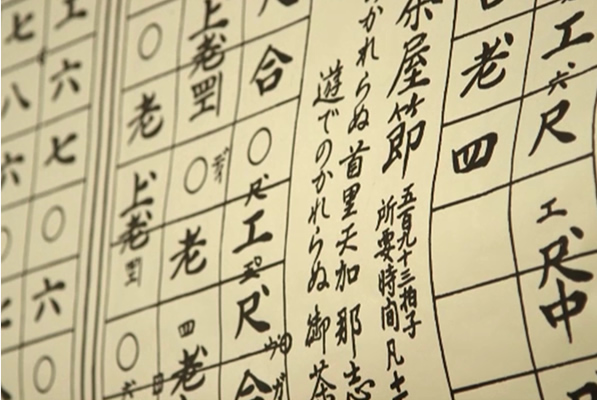 工六尺工尺中
老四
茶屋節
五百九十三拍子
所要時間凡十
かれらぬ首里天加那志
遊でのかれらぬ御茶
合○尺工尺合
上老四○老四老
○老上老四○
工六七○六○
七八六○